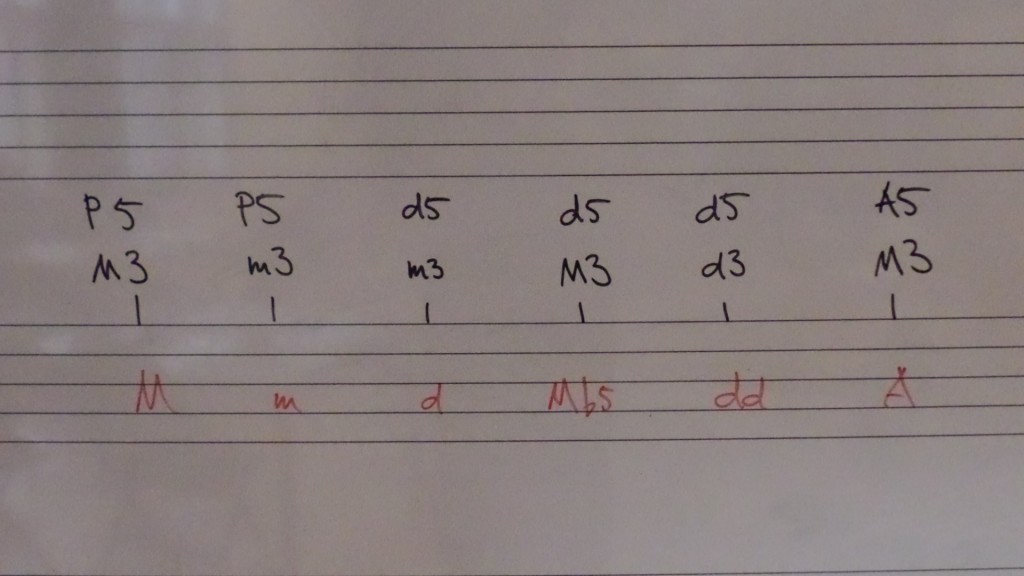 P5 P5 d5 d5 d5 A5
M3 m3 m3 M3 d3 M3
M m d Mb5 dd A